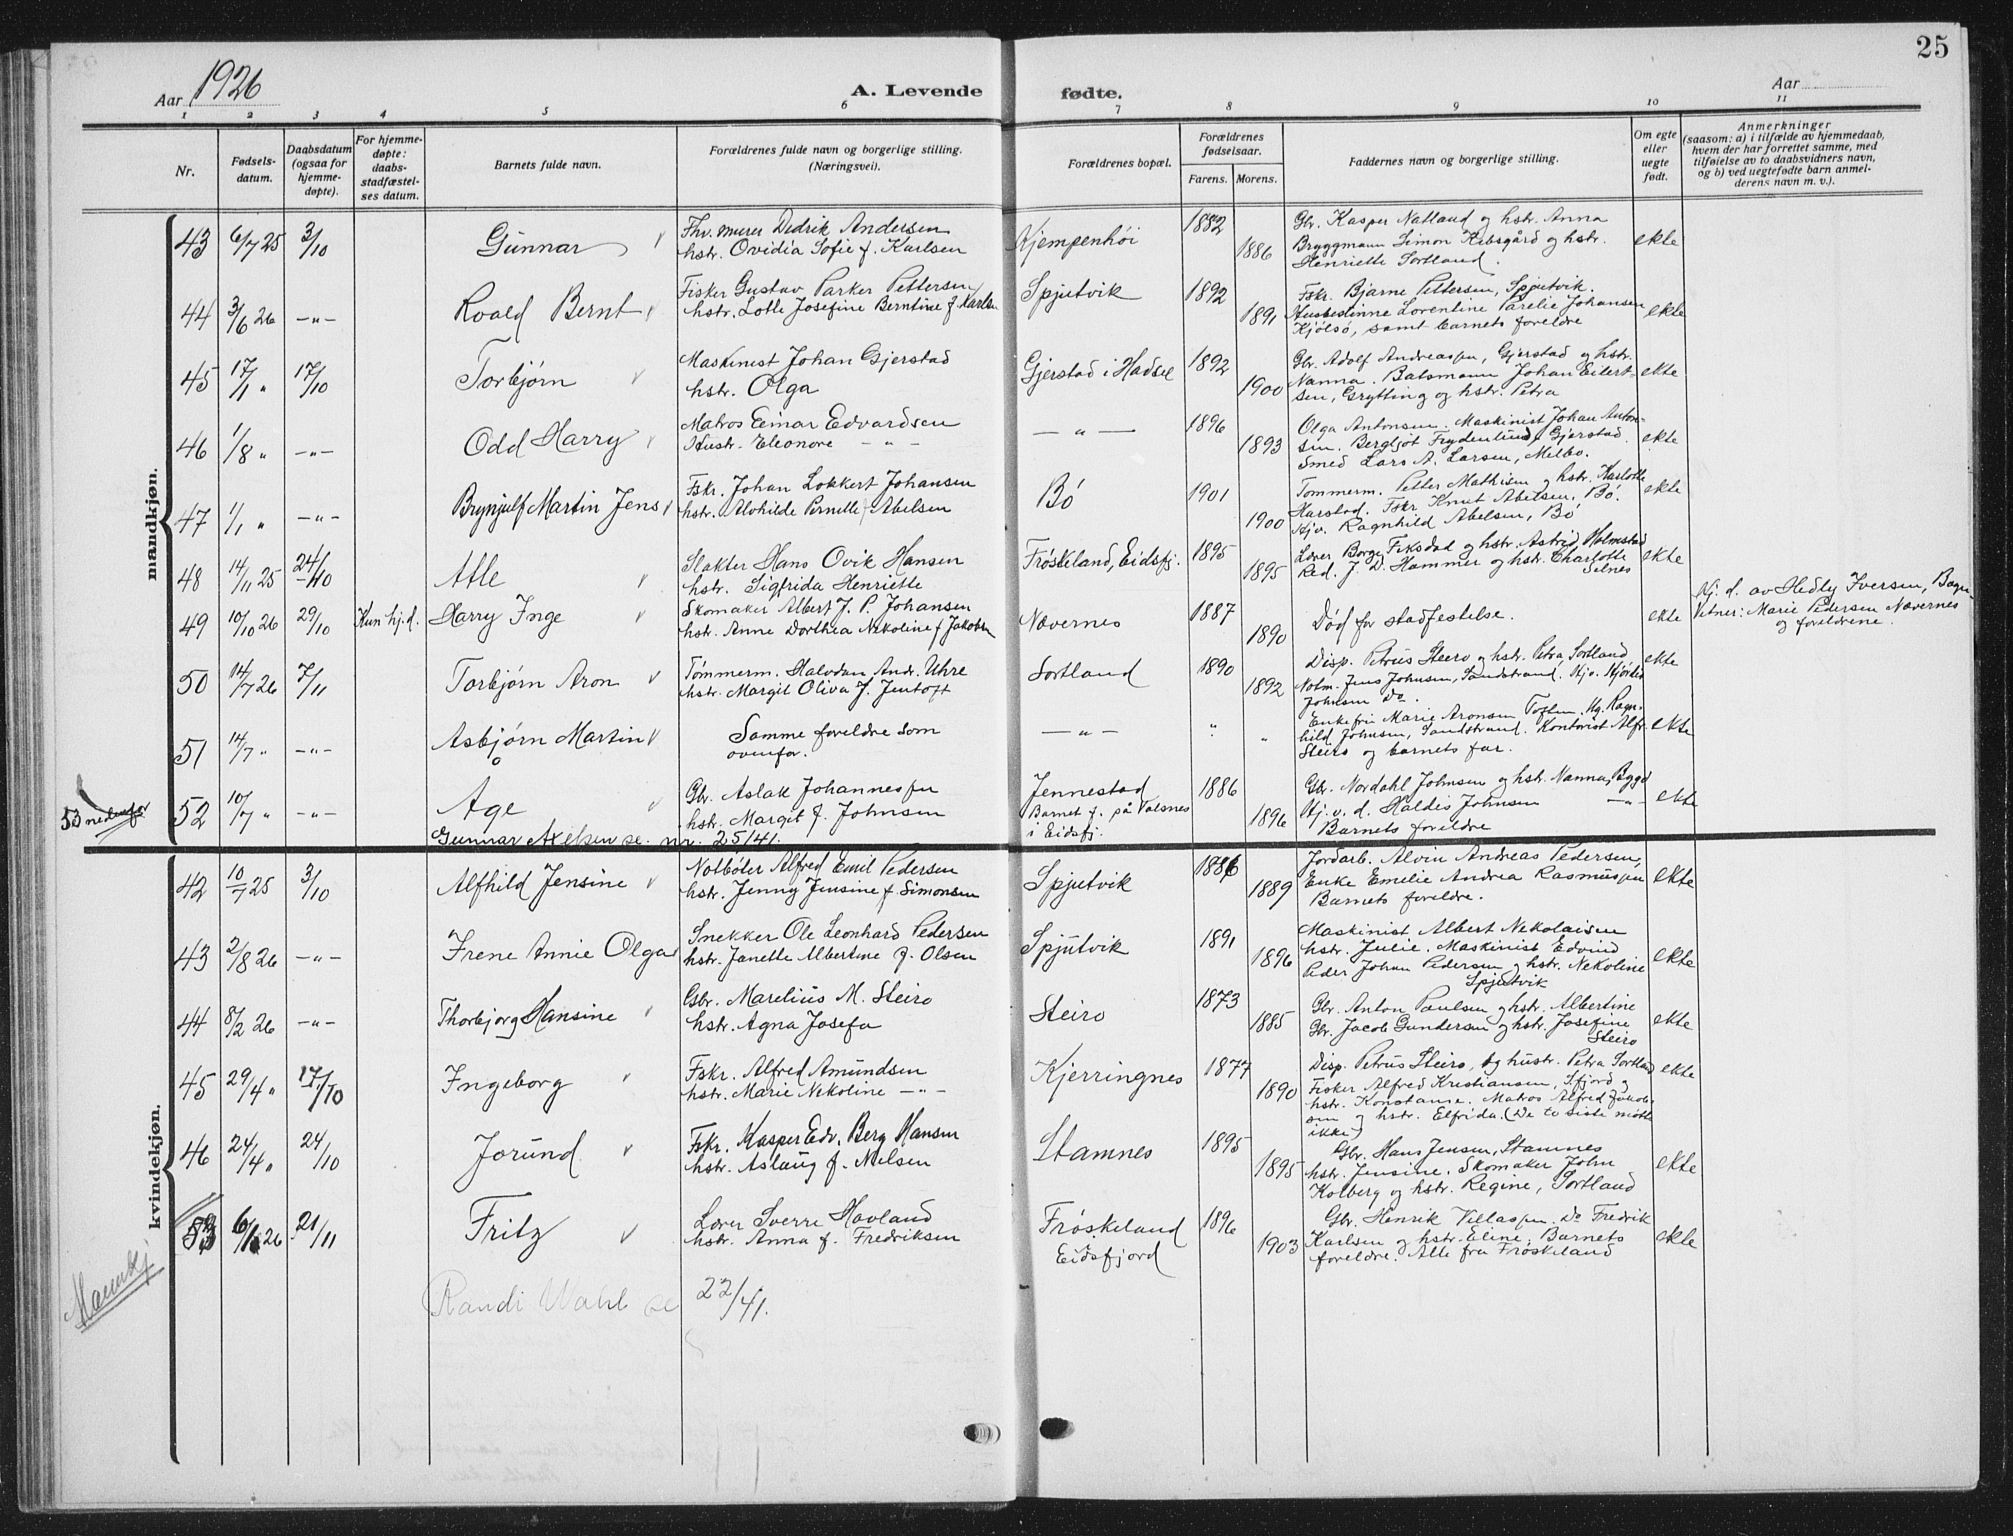 25
Aar 1926
A. Levende fødte.
Aar
1 2 3 4 5 6 7 8 9 10 11
Nr.
Fødsels-
datum.
Daabsdatum
(ogsaa for
hjemme-
døpte).
For hjemme-
døpte:
daabs-
stadfæstel-
ses datum.
Barnets fulde navn.
Forældrenes fulde navn og borgerlige stilling.
(Næringsvei).
Forældrenes bopæl.
Forældrenes
fødselsaar.
Farens. Morens.
Faddernes navn og borgerlige stilling.
Om egte
eller
uegte
født.
Anmerkninger
(saasom: a) i tilfælde av hjemmedaab,
hvem der har forrettet samme, med
tilføielse av to daabsvidners navn,
og b) ved uegtefødte barn anmel-
derens navn m. v.).
mandkjøn.
43 6/7 25 3/10 Gunnar
Fhv. murer Didrik Andersen
hstr. Ovidia Sofie f. Karlsen
Kjempenhøi 1882 1886
Gbr. Kasper Natland og hstr. Anna
Bryggmann Simon Kibsgård og hstr.
Henriette Sortland.
ekte
44 3/6 26 -"- Roald Bernt
Fisker Gustav Parker Pettersen
hstr. Lotte Josefine Berntine f Karlsen
Spjutvik 1892 1891
Fskr. Bjarne Pettersen, Spjutvik.
Husbestinne Lorentine Parelie Johansen
Kjølsø, samt barnets foreldre
ekte
45 17/1 " 17/10 Torbjørn
Maskinist Johan Gjerstad
hstr. Olga
Gjerstad i Hadsel 1892 1900
Gbr. Adolf Andreassen, Gjerstad og hstr.
Nanna. Batsmann Johan Eilert-
sen, Grytting og hstr. Petra
ekte
46 1/8 " -"- Odd Harry
Matros Einar Edvardsen
Hustr. Eleonore - " -
- " - 1896 1893
Olga Antonsen. Maskinist Johan Anton-
sen. Bergljot Frydenlund, Gjerstad.
Smed Lars A. Larsen, Melbo.
ekte
47 1/1 " -"- Brynjulf Martin Jens
Fskr. Johan Lokkert Johansen
hstr. Alvhilde Pernille f Abelsen
Bö 1901 1900
Tommerm. Petter Mathisen og hstr. Karlotte
Harstad. Fskr Knut Abelsen, Bö.
Hjv. Ragnhild Abelsen, Bö
ekte
48 14/11 25 24/10 Atle
Slakter Hans Ovik Hansen
hstr. Sigfrida Henriette
Frøskeland, Eidsfj. 1895 1895
Lærer Borge Fiksdal og hstr. Astrid, Holmstad
Red. J. D. Hammer og hstr. Charlotte
Selnes
ekte
49 10/10 26 29/10 Kun hj.d. Harry Inge
Skomaker Albert J. P. Johansen
hstr. Anne Dorthea Nekoline f Jakobsen
Nævernes 1887 1890
Død før stadfestelse.
ekte
Hj. d. av Hedly Iversen, Bogn.
Vitner: Marie Pedersen Nævernes
og foreldrene.
50 14/7 26 7/11 Torbjørn Aron
Tømmerm. Halvdan Andr. Uhre
hstr. Margit Oliva f. Jentoft
Sortland 1890 1892
Disp. Petrus Steiro og hstr. Petra, Sortland
Notm. Jens Johnsen, Sandstrand. Hjv. Hjördis
Johnsen Do.
ekte
51 14/7 " -"- Asbjørn Martin
Samme foreldre som
ovenfor.
- " - " "
Enkefru Marie Aronsen Toften. Ug. Ragn-
hild Johnsen, Sandstrand. Kontorist Alfr.
Steiro og barnets far.
ekte
53 nedenfor
52 10/7 " -"- Åge
Gbr. Aslak Johannessen
hstr. Margit f. Johnsen
Jennestad
Barnet f. på Valsnes
i Eidsfj.
1886 1896
Gbr. Nordahl Johnsen og hstr. Nanna, Bygd
Hj. v. d. Haldis Johnsen - " -
Barnets foreldre
ekte
Gunnar Axelsen se. nr. 25/41.
kvindekjøn.
42 10/7 25 3/10 Alfhild Jensine
Notbøter Alfred Emil Pedersen
hstr. Jenny Jensine f Simonsen
Spjutvik 1886 1889
Jordarb. Alvin Andreas Pedersen,
Enke Emelie Andrea Rasmussen
Barnets foreldre.
ekte
43 2/8 26 -"- Irene Annie Olga
Snekker Ole Leonhard Pedersen
hstr. Janette Albertine f. Olsen
Spjutvik 1891 1896
Maskinist Albert Nekolaisen
hstr. Julie. Maskinist Edvind
Peder Johan Pedersen og hstr. Nekoline
Spjutvik
ekte
44 8/2 26 -"- Thorbjorg Hansine
Gbr. Marelius M. Steiro
hstr. Agna Josefa
Steiro 1873 1885
Gbr. Anton Paulsen og hstr. Albertine
Gbr. Jacob Gundersen og hstr. Josefine
Steiro
ekte
45 29/4 " 17/10 Ingeborg
Fskr. Alfred Amundsen
hstr. Marie Nekoline - " -
Kjerringnes 1877 1890
Disp. Petrus Steiro, og hustr. Petra Sortland
Fisker Alfred Kristiansen, Sfjord og
hstr. Konstanse. Matros Alfred Jakob-
sen og hstr. Elfrida. (De to siste møtte
ikke)
ekte
46 24/4 " 24/10 Jorund
Fskr. Kasper Edv. Berg Hansen
hstr. Aslaug f. Nilsen
Stamnes 1895 1895
Gbr. Hans Jensen, Stamnes
hstr. Jensine. Skomaker John
Kolberg og hstr. Regine, Sortland
ekte
53 6/1 26 21/11 Fritz
Lærer Sverre Hovland
hstr. Anna f. Fredriksen
Frøskeland
Eidsfjord
1896 1903
Gbr. Henrik Villassen. Do Fredrik
Karlsen og hstr. Eline; Barnets
foreldre. Alle fra Frøskeland
ekte
Mannkj
Randi Wahl se 22/41.